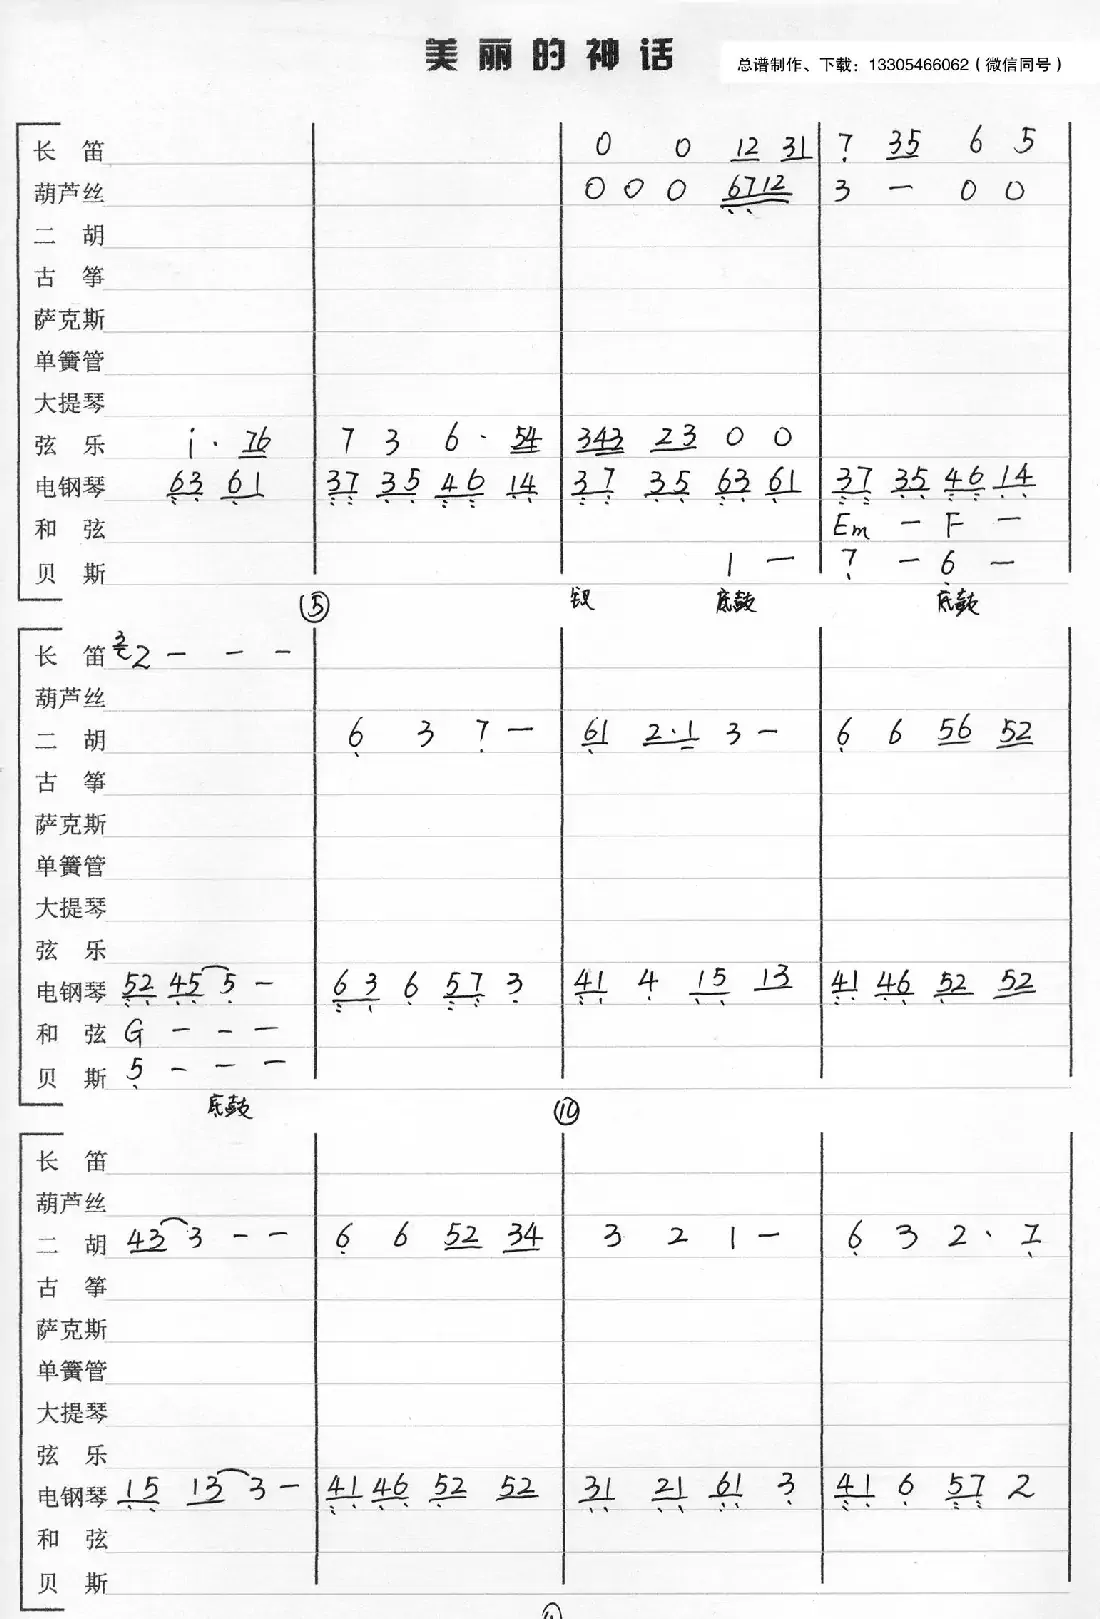 美丽的神话
总谱制作、下载：13305466062（微信同号）
长笛 0 0 12 31 7 35 6 5
葫芦丝 0 0 0 6712 3 — 0 0
二胡
古筝
萨克斯
单簧管
大提琴
弦乐 i · 76 7 3 6 · 54 343 23 0 0
电钢琴 63 61 37 35 46 14 37 35 63 61 37 35 46 14
和弦 Em — F —
贝斯 1 — 7 — 6 —
⑤ 镲 底鼓 底鼓
长笛 3 2 — — —
葫芦丝
二胡 6 3 7 — 61 2·1 3 — 6 6 56 52
古筝
萨克斯
单簧管
大提琴
弦乐
电钢琴 52 45 5 — 63 6 57 3 41 4 15 13 41 46 52 52
和弦 G — — —
贝斯 5 — — —
底鼓 ⑩
长笛
葫芦丝
二胡 43 3 — — 6 6 52 34 3 2 1 — 6 3 2 · 7
古筝
萨克斯
单簧管
大提琴
弦乐
电钢琴 15 13 3 — 41 46 52 52 31 21 61 3 41 6 57 2
和弦
贝斯